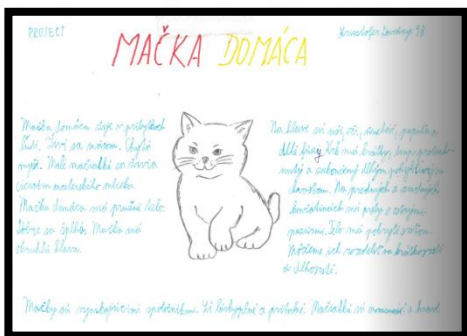 PROJECT
MAČKA DOMÁCA
Mačka domáca žije v príbytkoch
ľudí. Živí sa mäsom. Chytá
myši. Malé mačiatka sa živia
cicaním materského mlieka.
Mačka domáca má pružné telo.
Dobre sa šplhá. Mačka má
okrúhlu hlavu.
Na hlave sú uši, oči, papuľa a
dlhé fúzy. Krk má krátky, trup pretiah-
nutý a zakončený dlhým pohyblivým
chvostom. Na predných a zadných
končatinách má prsty s ostrými
pazúrmi. Telo má pokryté srsťou.
Môžeme ich rozdeliť na krátkosrsté
a dlhosrsté.
Mačky sú spoločníkmi. Sú a prítulné. Mačiatka sú a hravé